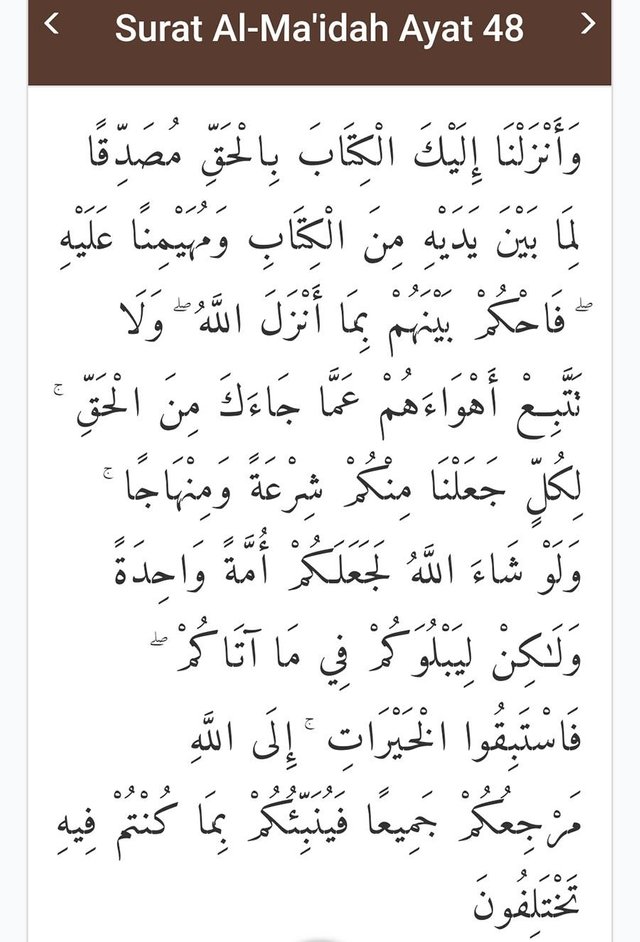 Surat Al-Ma'idah Ayat 48
وَأَنْزَلْنَا إِلَيْكَ الْكِتَابَ بِالْحَقِّ مُصَدِّقًا
لِمَا بَيْنَ يَدَيْهِ مِنَ الْكِتَابِ وَمُهَيْمِنًا عَلَيْهِ
ۖ فَاحْكُمْ بَيْنَهُمْ بِمَا أَنْزَلَ اللَّهُ ۖ وَلَا
تَتَّبِعْ أَهْوَاءَهُمْ عَمَّا جَاءَكَ مِنَ الْحَقِّ ۚ
لِكُلٍّ جَعَلْنَا مِنْكُمْ شِرْعَةً وَمِنْهَاجًا ۚ
وَلَوْ شَاءَ اللَّهُ لَجَعَلَكُمْ أُمَّةً وَاحِدَةً
وَلَٰكِنْ لِيَبْلُوَكُمْ فِي مَا آتَاكُمْ ۖ
فَاسْتَبِقُوا الْخَيْرَاتِ ۚ إِلَى اللَّهِ
مَرْجِعُكُمْ جَمِيعًا فَيُنَبِّئُكُمْ بِمَا كُنْتُمْ فِيهِ
تَخْتَلِفُونَ